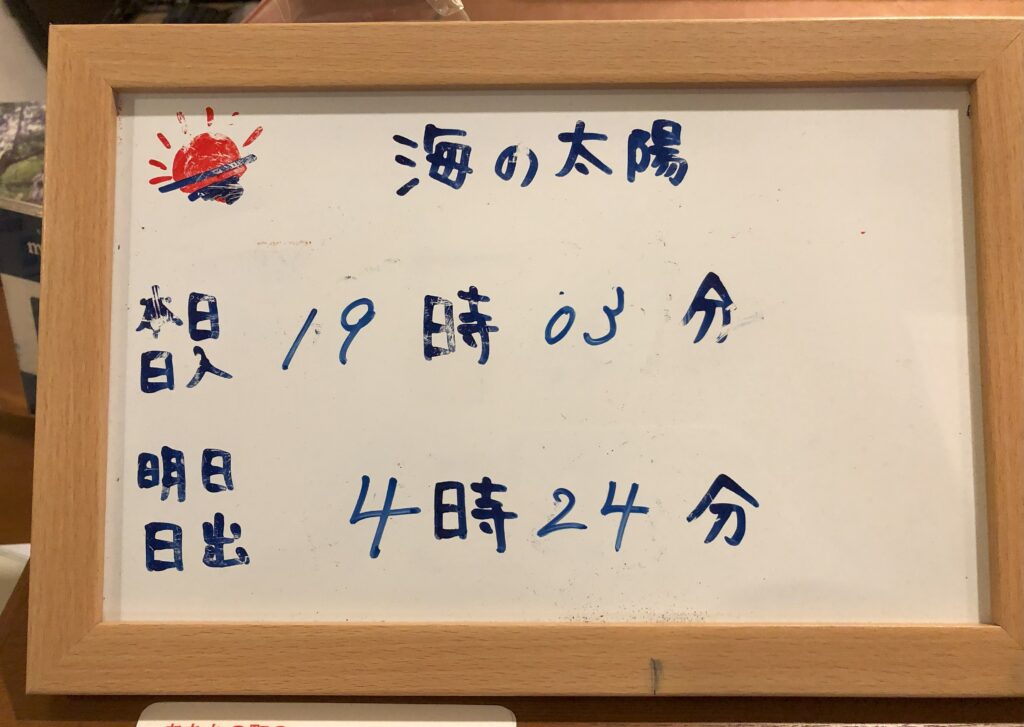 海の太陽
本日
日入 19時03分
明日
日出 4時24分